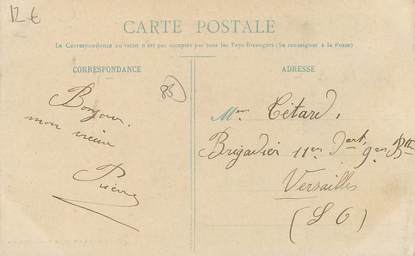 12 €
CARTE POSTALE
La Correspondance au recto n'est pas acceptée par tous les Pays étrangers (Se renseigner à la Poste)
CORRESPONDANCE
ADRESSE
85
Bonjour
mon vieux
Pierre
Tétard,
Brigadier 11em d'art. 9em Btt
Versailles
(S O)